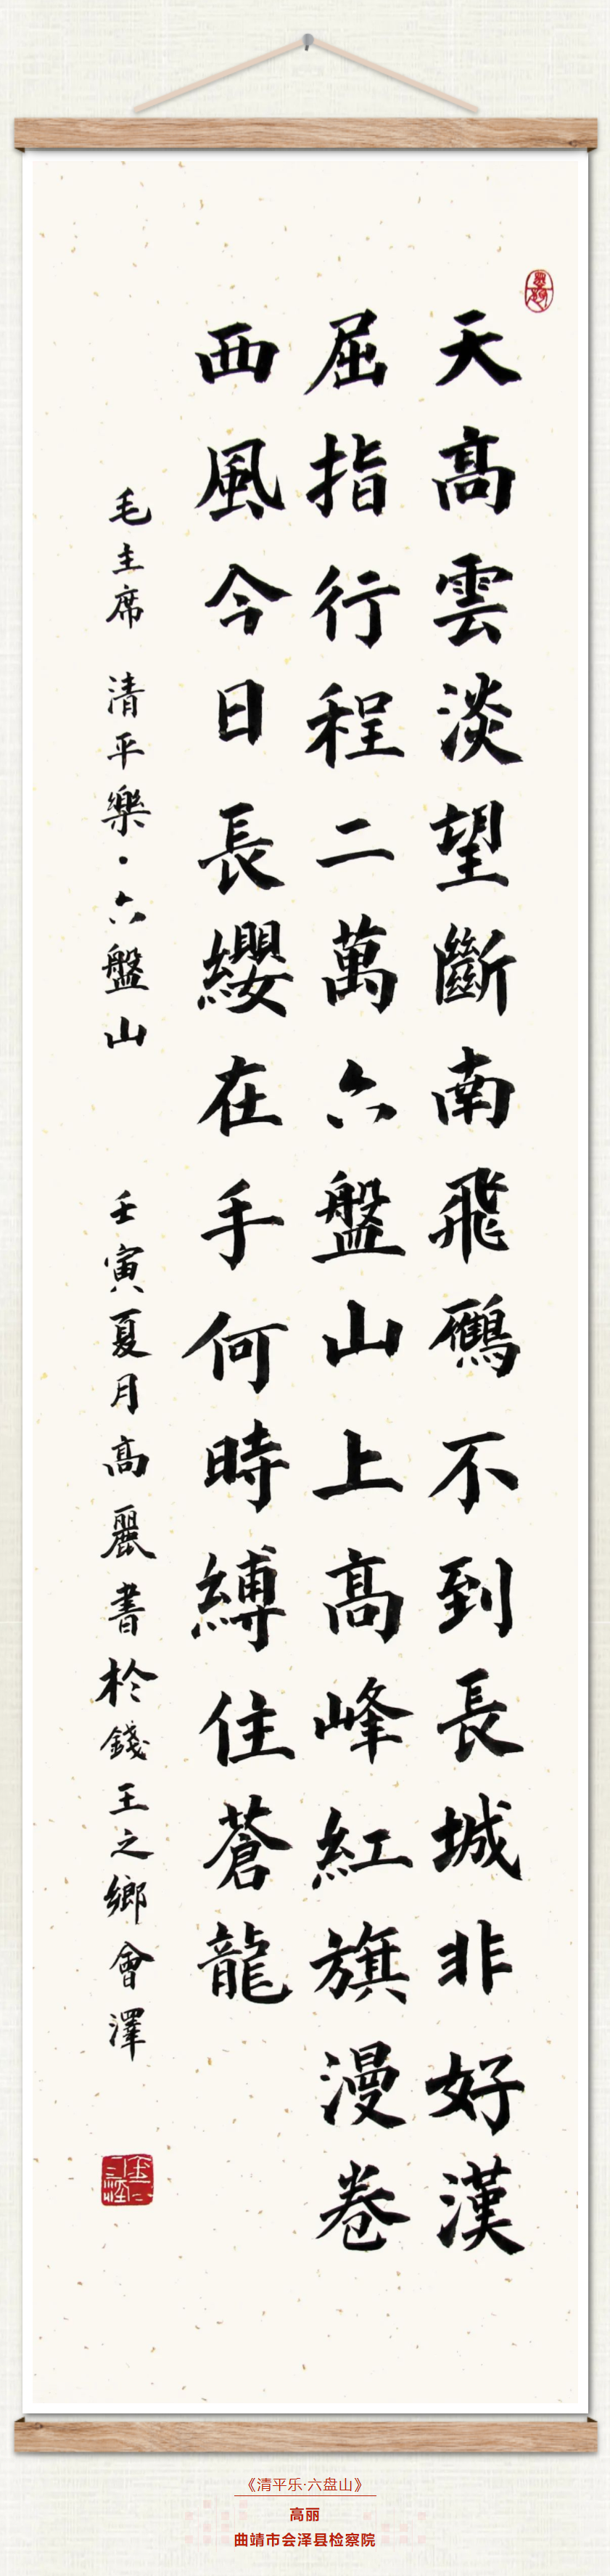 天高雲淡望斷南飛鴈不到長城非好漢
屈指行程二萬六盤山上高峰紅旗漫卷
西風今日長纓在手何時縛住蒼龍
毛主席 清平樂·六盤山 壬寅夏月高麗書於錢王之鄉會澤
《清平乐·六盘山》
高丽
曲靖市会泽县检察院